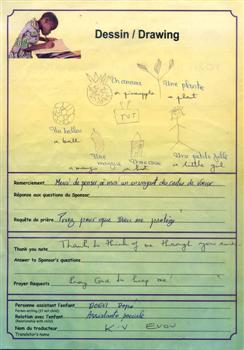 Dessin / Drawing
Un ananas
a pineapple
Une plante
a plant
TVT
Un ballon
a ball
Une mangue
a mango
Une case
a hut
Une petite fille
a little girl
Remerciement Merci de penser à moi en envoyant du
Réponse aux questions du Sponsor:
Requête de prière Priez pour que Dieu me protège
Thank you note Thanks to think of me through your
Answer to Sponsor's questions
Prayer Requests Pray God to keep me
Personne assistant l'enfant
Person writing (if not child)
Relation avec l'enfant Assistante sociale
(Relationship with child)
Nom du traducteur K.V EVOU
Translator's name